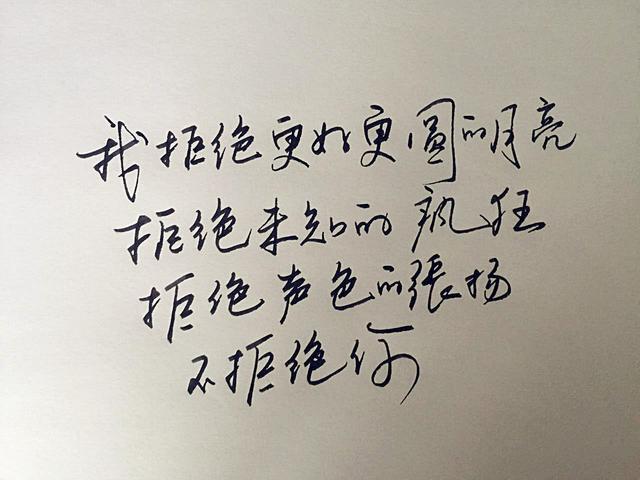 我拒绝更好更圆的月亮
拒绝未知的疯狂
拒绝声色的張扬
不拒绝你